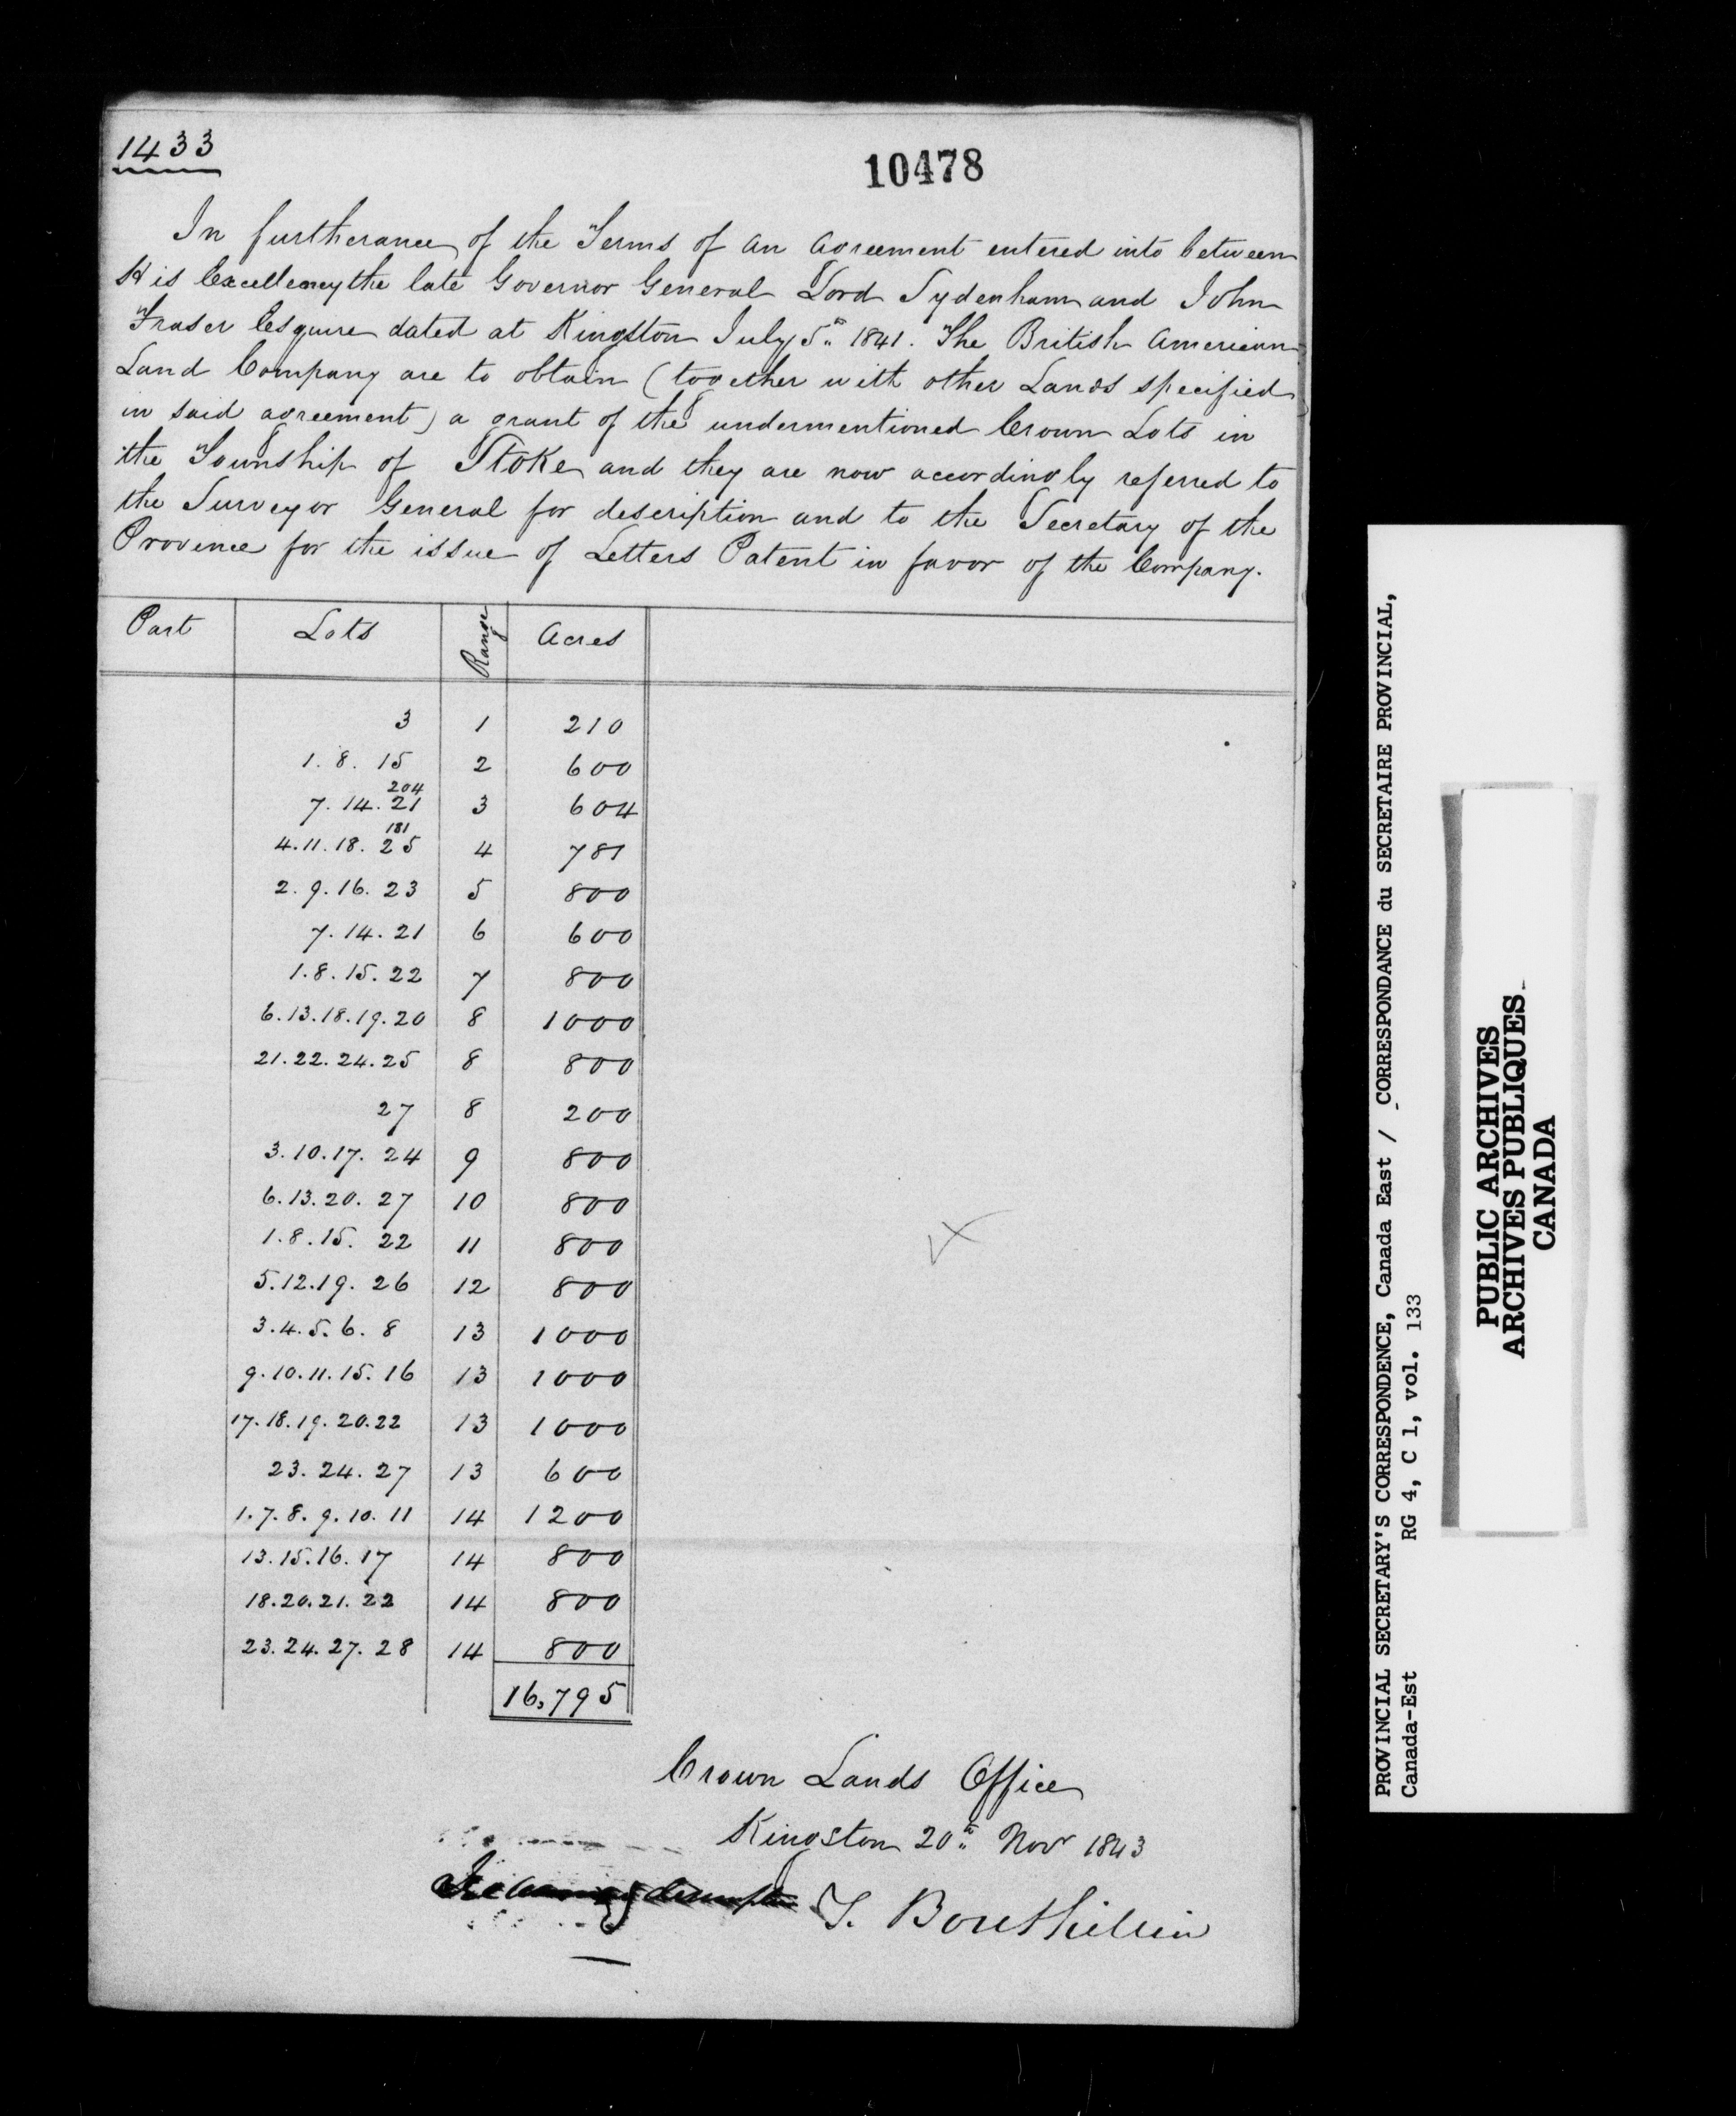 1433
10478
In furtherance of the Terms of an agreement entered into between
His Excellency the late Governor General Lord Sydenham and John
Fraser Esquire dated at Kingston July 5th 1841. The British American
Land Company are to obtain (together with other Lands specified
in said agreement) a grant of the undermentioned Crown Lots in
the Township of Stoke and they are now accordingly referred to
the Surveyor General for description and to the Secretary of the
Province for the issue of Letters Patent in favor of the Company.
Part Lots Range Acres
3 1 210
1. 8. 15 2 600
204
7. 14. 21 3 604
181
4. 11. 18. 25 4 781
2. 9. 16. 23 5 800
7. 14. 21 6 600
1. 8. 15. 22 7 800
6. 13. 18. 19. 20 8 1000
21. 22. 24. 25 8 800
27 8 200
3. 10. 17. 24 9 800
6. 13. 20. 27 10 800
1. 8. 15. 22 11 800
5. 12. 19. 26 12 800
3. 4. 5. 6. 8 13 1000
9. 10. 11. 15. 16 13 1000
17. 18. 19. 20. 22 13 1000
23. 24. 27 13 600
1. 7. 8. 9. 10. 11 14 1200
13. 15. 16. 17 14 800
18. 20. 21. 22 14 800
23. 24. 27. 28 14 800
16,795
Crown Lands Office
Kingston 20th Novr 1843
T. Bouthillier
PROVINCIAL SECRETARY'S CORRESPONDENCE, Canada East / CORRESPONDANCE du SECRETAIRE PROVINCIAL,
Canada-Est RG 4, C 1, vol. 133
PUBLIC ARCHIVES
ARCHIVES PUBLIQUES
CANADA